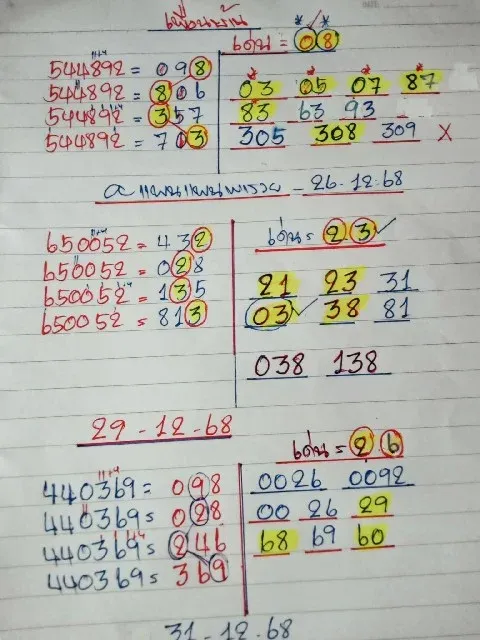 เพื่อนบ้าน
544892 = 098
544892 = 806
544892 = 357
544892 = 703
เด่น = 08
03 05 07 87
83 63 93
305 308 309 X
26-12-68
650052 = 432
650052 = 028
650052 = 135
650052 = 813
เด่น = 23 ✓
21 23 31
03 ✓ 38 81
038 138
29-12-68
440369 = 098
440369 = 028
440369 = 246
440369 = 369
เด่น = 26
0026 0092
00 26 29
68 69 60
31-12-68